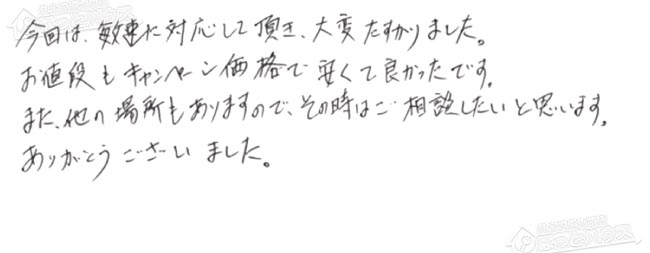 今回は、敏速に対応して頂き、大変たすかりました。
お値段もキャンペーン価格で安くて良かったです。
また、他の場所もありますので、その時はご相談したいと思います。
ありがとうございました。